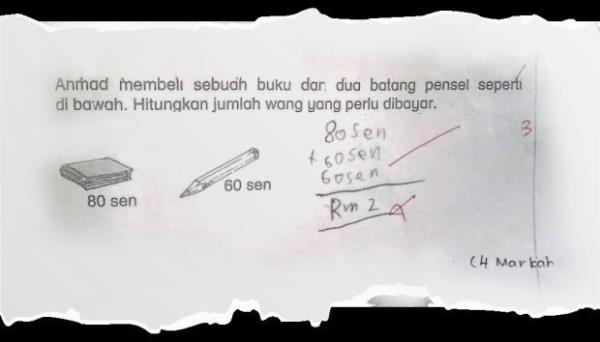 Ahmad membeli sebuah buku dan dua batang pensel seperti
di bawah. Hitungkan jumlah wang yang perlu dibayar.
80 sen
+ 60 sen
60 sen
Rm 2
3
80 sen
60 sen
(4 Markah